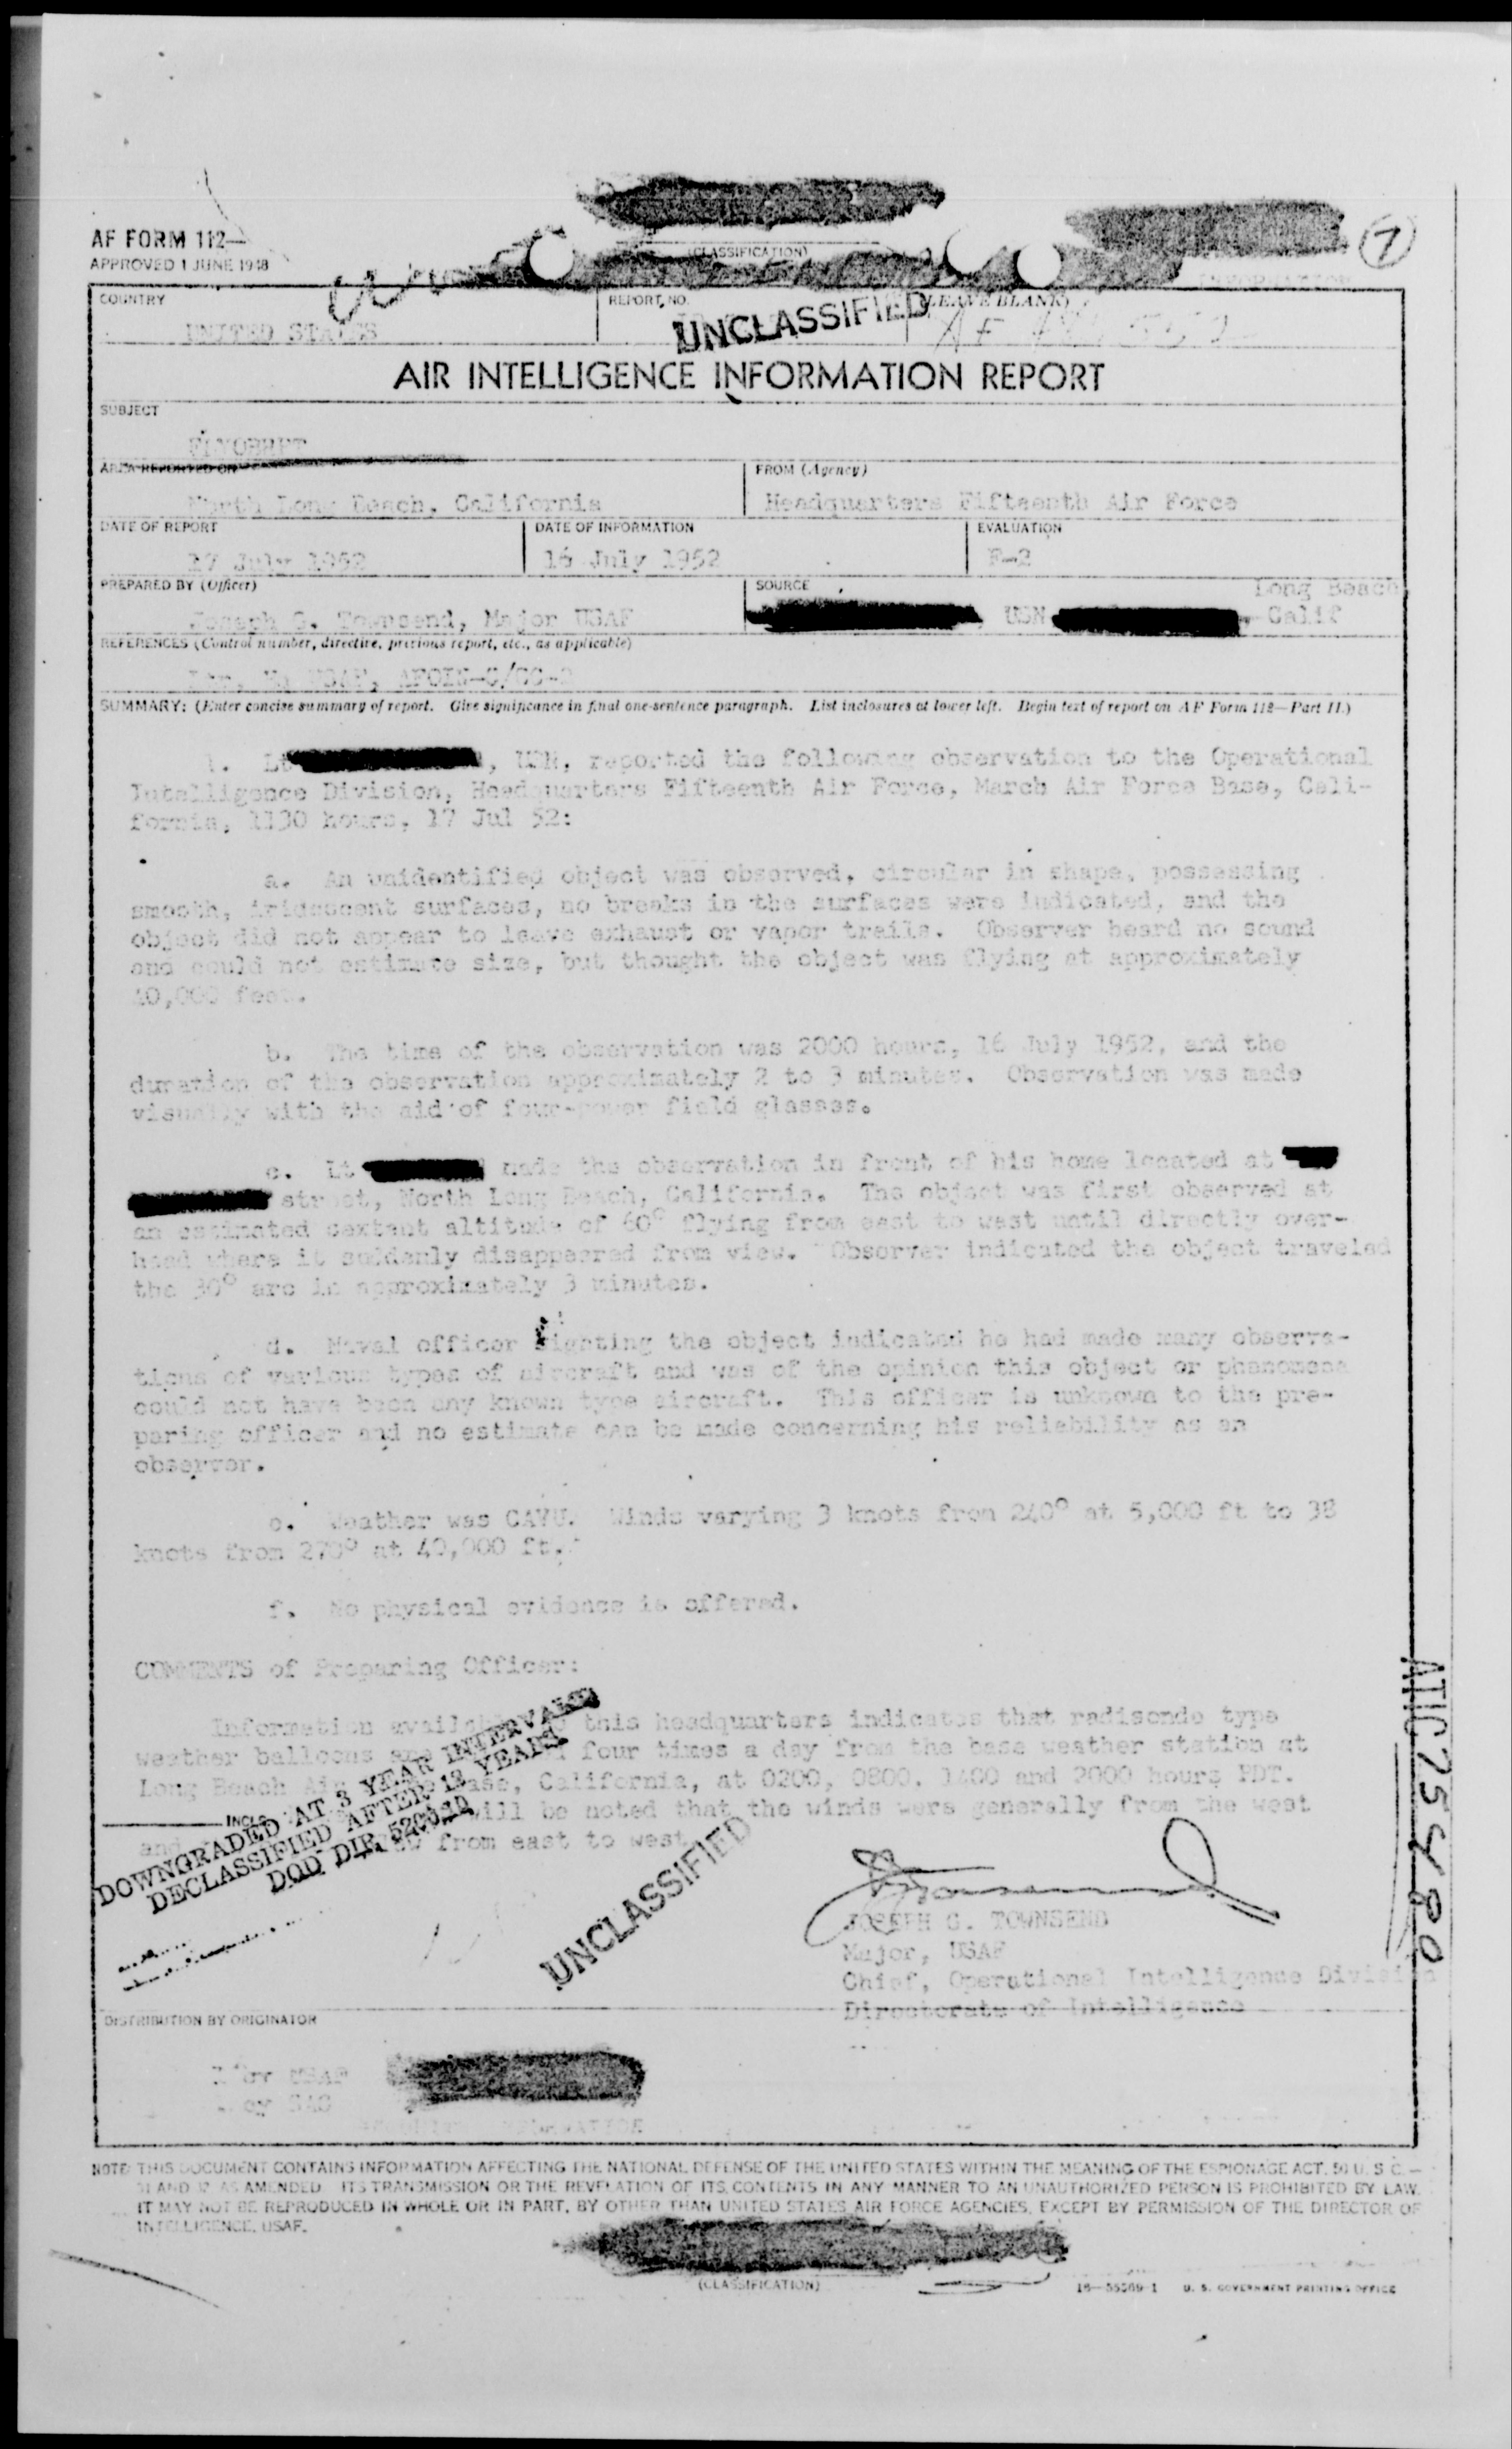 AF FORM 112—
APPROVED 1 JUNE 1948
(CLASSIFICATION)
7
COUNTRY
UNITED STATES
REPORT NO.
(LEAVE BLANK)
UNCLASSIFIED
AF
AIR INTELLIGENCE INFORMATION REPORT
SUBJECT
FLYOBRPT
AREA REPORTED ON
North Long Beach, California
FROM (Agency)
Headquarters Fifteenth Air Force
DATE OF REPORT
17 July 1952
DATE OF INFORMATION
16 July 1952
EVALUATION
F-2
PREPARED BY (Officer)
Joseph G. Townsend, Major USAF
SOURCE
USN, Long Beach, Calif
REFERENCES (Control number, directive, previous report, etc., as applicable)
Ltr, Hq USAF, AFOIN-C/CC-2
SUMMARY: (Enter concise summary of report. Give significance in final one-sentence paragraph. List inclosures at lower left. Begin text of report on AF Form 112—Part II.)
1. Lt , USN, reported the following observation to the Operational
Intelligence Division, Headquarters Fifteenth Air Force, March Air Force Base, Cali-
fornia, 1130 hours, 17 Jul 52:
a. An unidentified object was observed, circular in shape, possessing
smooth, iridescent surfaces, no breaks in the surfaces were indicated, and the
object did not appear to leave exhaust or vapor trails. Observer heard no sound
and could not estimate size, but thought the object was flying at approximately
40,000 feet.
b. The time of the observation was 2000 hours, 16 July 1952, and the
duration of the observation approximately 2 to 3 minutes. Observation was made
visually with the aid of four-power field glasses.
c. Lt made the observation in front of his home located at
street, North Long Beach, California. The object was first observed at
an estimated sextant altitude of 60° flying from east to west until directly over-
head where it suddenly disappeared from view. Observer indicated the object traveled
the 30° arc in approximately 3 minutes.
d. Naval officer sighting the object indicated he had made many observa-
tions of various types of aircraft and was of the opinion this object or phenomena
could not have been any known type aircraft. This officer is unknown to the pre-
paring officer and no estimate can be made concerning his reliability as an
observer.
e. Weather was CAVU. Winds varying 3 knots from 240° at 5,000 ft to 38
knots from 270° at 40,000 ft.
f. No physical evidence is offered.
COMMENTS of Preparing Officer:
Information available to this headquarters indicates that radisonde type
weather balloons are four times a day from the base weather station at
Long Beach Air Base, California, at 0200, 0800, 1400 and 2000 hours PDT.
will be noted that the winds were generally from the west
and from east to west.
INCLS
DOWNGRADED AT 3 YEAR INTERVALS
DECLASSIFIED AFTER 12 YEARS
DOD DIR 5200.10
UNCLASSIFIED
JOSEPH G. TOWNSEND
Major, USAF
Chief, Operational Intelligence Division
Directorate of Intelligence
ATIC 75480
DISTRIBUTION BY ORIGINATOR
USAF
SAC
NOTE: THIS DOCUMENT CONTAINS INFORMATION AFFECTING THE NATIONAL DEFENSE OF THE UNITED STATES WITHIN THE MEANING OF THE ESPIONAGE ACT, 50 U. S. C.—
31 AND 32 AS AMENDED. ITS TRANSMISSION OR THE REVELATION OF ITS CONTENTS IN ANY MANNER TO AN UNAUTHORIZED PERSON IS PROHIBITED BY LAW.
IT MAY NOT BE REPRODUCED IN WHOLE OR IN PART, BY OTHER THAN UNITED STATES AIR FORCE AGENCIES, EXCEPT BY PERMISSION OF THE DIRECTOR OF
INTELLIGENCE, USAF.
(CLASSIFICATION)
16—55569-1 U. S. GOVERNMENT PRINTING OFFICE